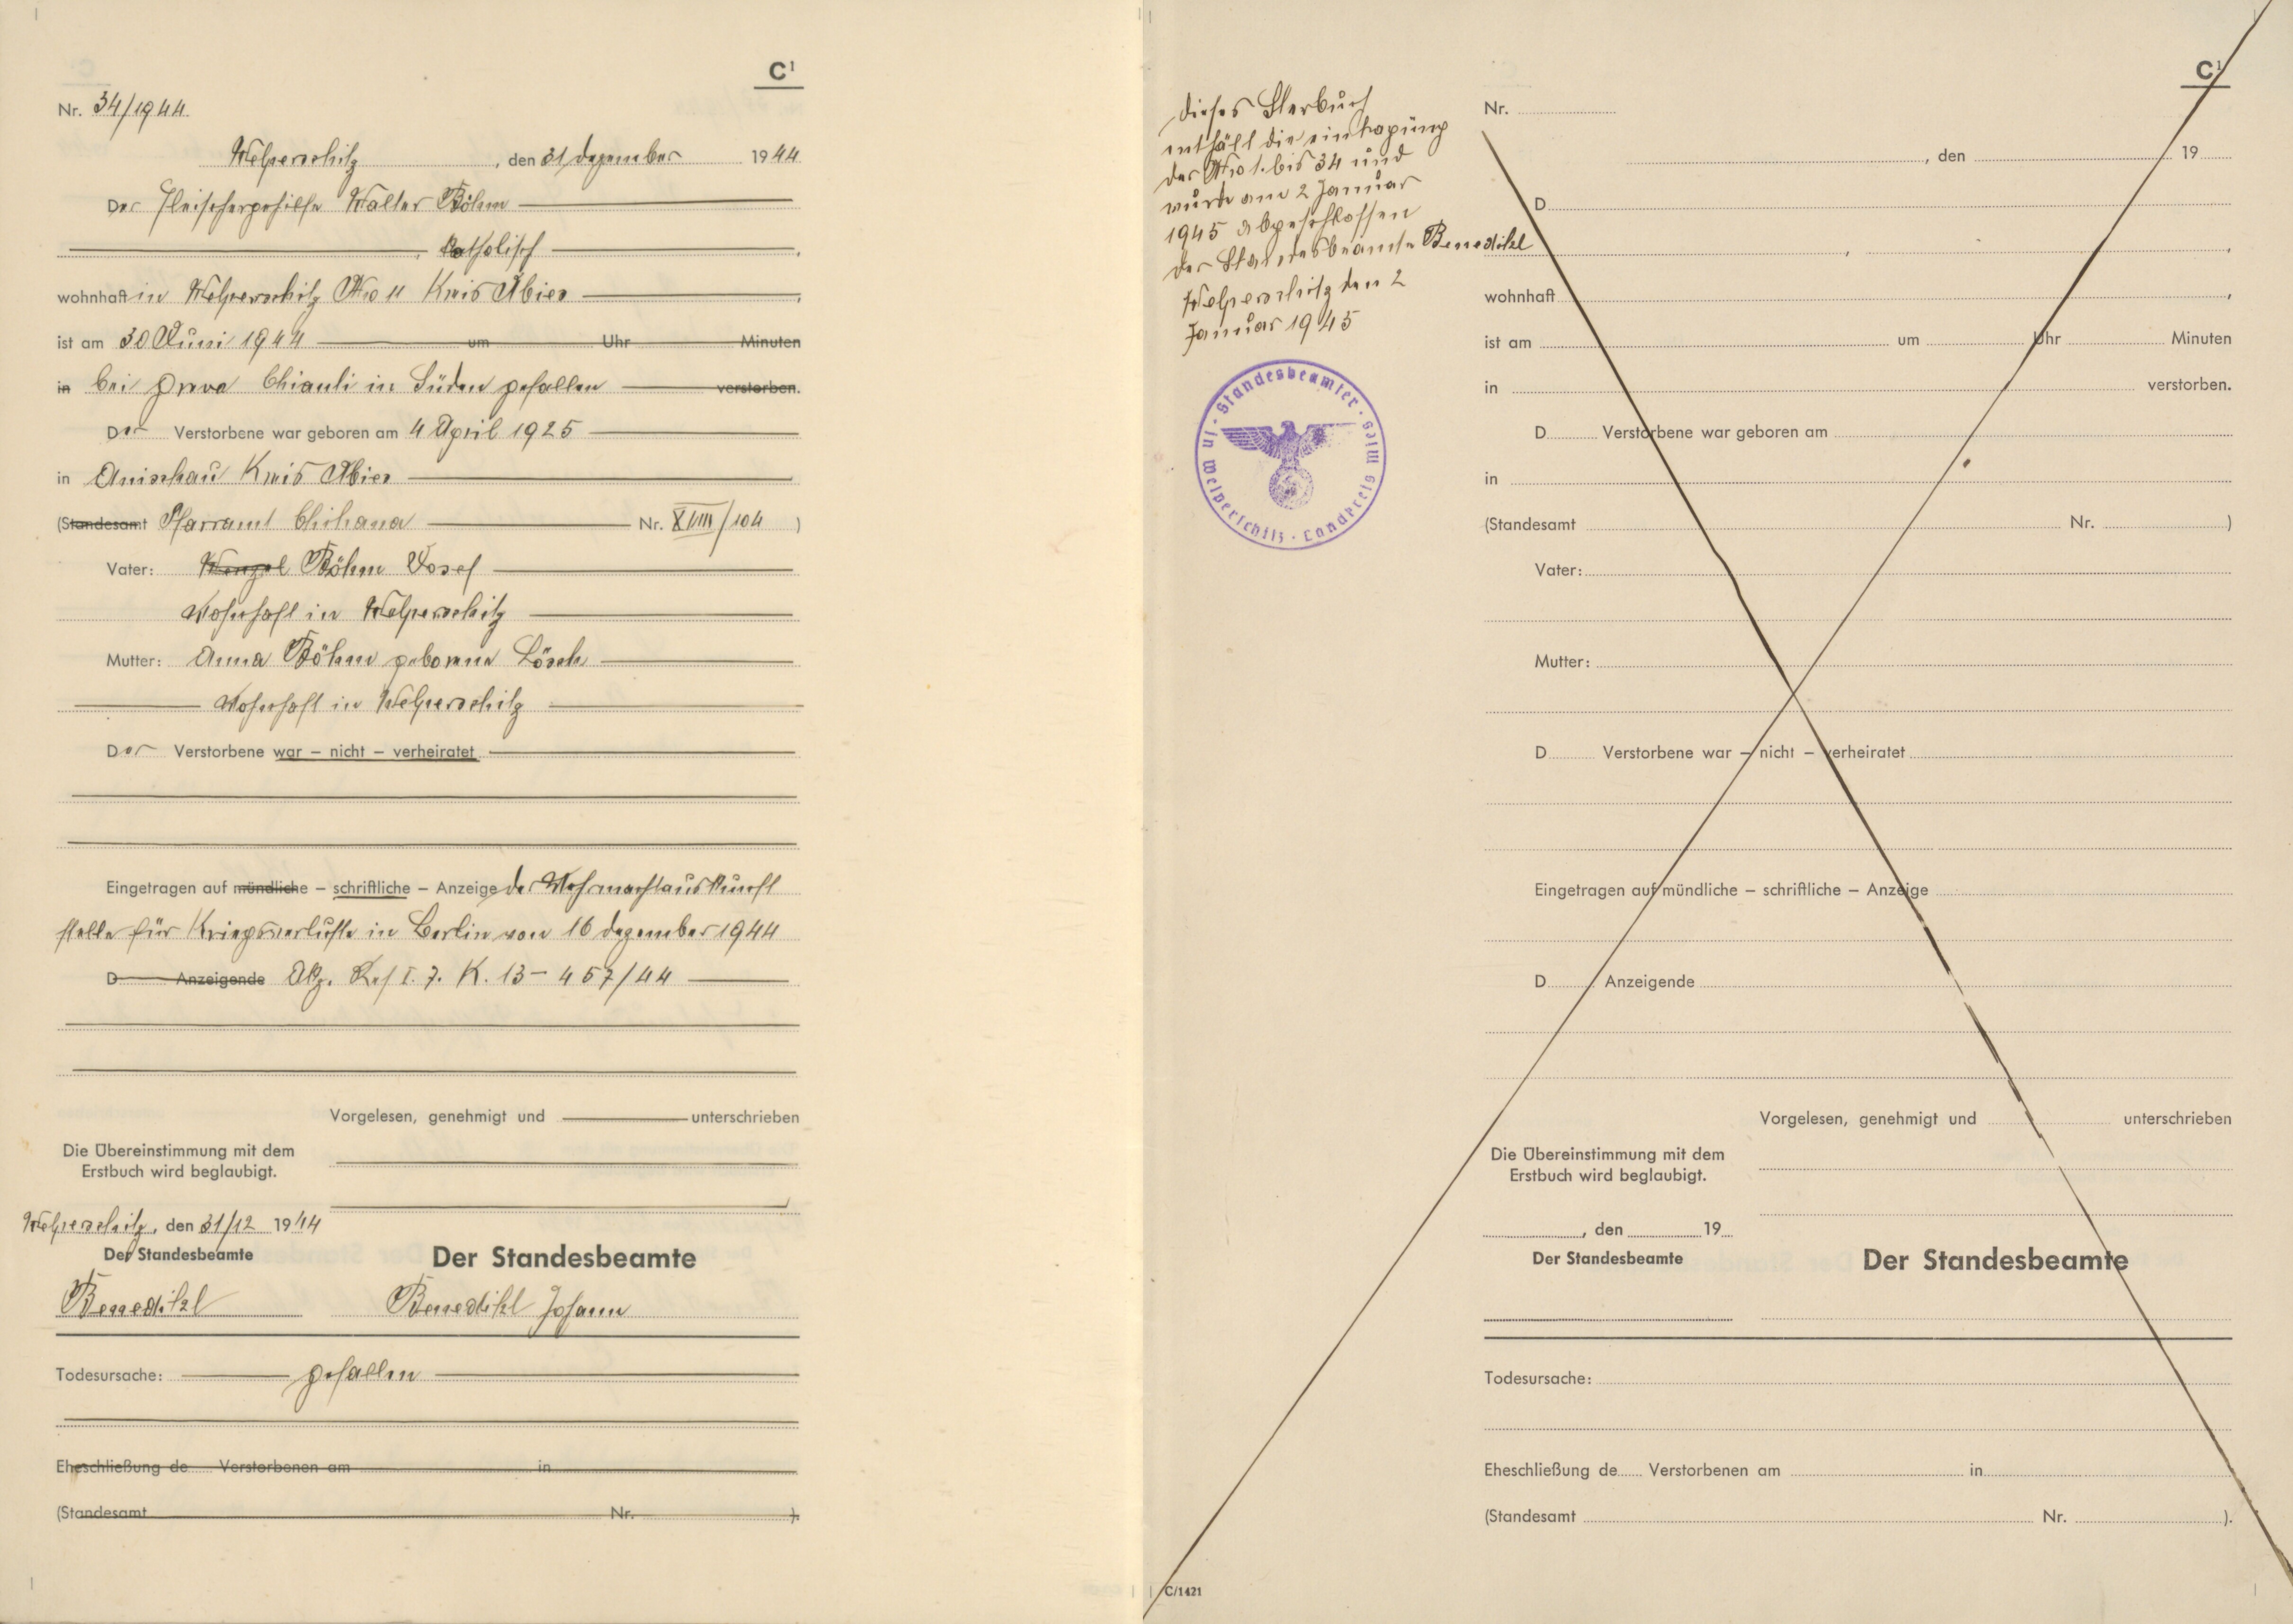 C¹
Nr. 34/1944
Welperschitz, den 31 dezember 1944
Der Fleischergehilfe Walter Böhm
, katholisch ,
wohnhaft in Welperschitz No 11 Kreis Mies ,
ist am 30 Juni 1944 um Uhr Minuten
in bei Greve Chianti in Süden gefallen verstorben.
Der Verstorbene war geboren am 4 April 1925
in Anischau Kreis Mies
(Standesamt Pfarramt Nr. XVIII/104 )
Vater: Wenzel Böhm Josef
Wohnhaft in Welperschitz
Mutter: Anna Böhm geborene Lösch
Wohnhaft in Welperschitz
Der Verstorbene war – nicht – verheiratet
Eingetragen auf mündliche – schriftliche – Anzeige der Wehrmachtauskunft
stelle für Kriegsverluste in Berlin von 16 dezember 1944
D Anzeigende Akz. Ref I. 7. K. 13 – 457/44
Vorgelesen, genehmigt und unterschrieben
Die Übereinstimmung mit dem
Erstbuch wird beglaubigt.
Welperschitz, den 31/12 1944
Der Standesbeamte Der Standesbeamte
Benedikt Benedikt Johann
Todesursache: gefallen
Eheschließung de Verstorbenen am in
(Standesamt Nr. ).
dieses Sterbuch
enthält die eintragung
der No 1. bis 34 und
wurde am 2 Januar
1945 abgeschlossen
der Standesbeamte Benedikt
Welperschitz den 2
Januar 1945
Standesbeamter · in Welperschitz · Landkreis Mies ·
C¹
Nr.
, den 19
D
, ,
wohnhaft ,
ist am um Uhr Minuten
in verstorben.
D Verstorbene war geboren am
in
(Standesamt Nr. )
Vater:
Mutter:
D Verstorbene war – nicht – verheiratet
Eingetragen auf mündliche – schriftliche – Anzeige
D Anzeigende
Vorgelesen, genehmigt und unterschrieben
Die Übereinstimmung mit dem
Erstbuch wird beglaubigt.
, den 19
Der Standesbeamte Der Standesbeamte
Todesursache:
Eheschließung de Verstorbenen am in
(Standesamt Nr. ).
C/1421